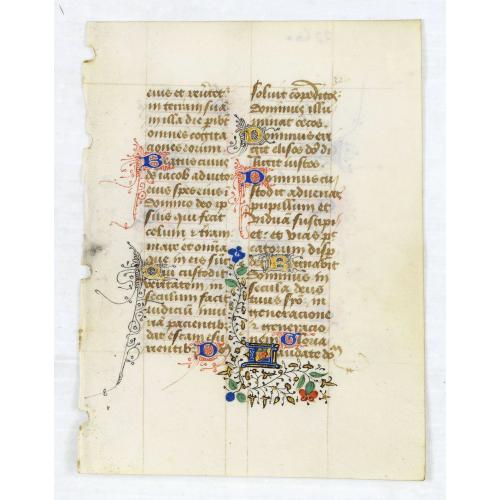 eius et revertet
in terram sua
in illa die pibt
omnes cogita
tiones eorum
Beatus cuius
deus iacob adiutor
eius spes eius i
domino deo ip
sius qui fecit
celum et terram
mare et omnia
que in eis sunt
Qui custodit
veritatem in
seculum facit
iudicium iniu
riam pacientib
dat escam esu
rientib Do
soluit compeditos
Dominus illu
minat cecos
Dominus eri
git elisos dns di
ligit iustos
Dominus cu
stodit aduenas
pupillum et
viduam suscipi
et et vias pec
catorum disp
Regnabit
dominus in
secula deus
tuus syo in
generacione
et generac
Gloria
Laudate dom